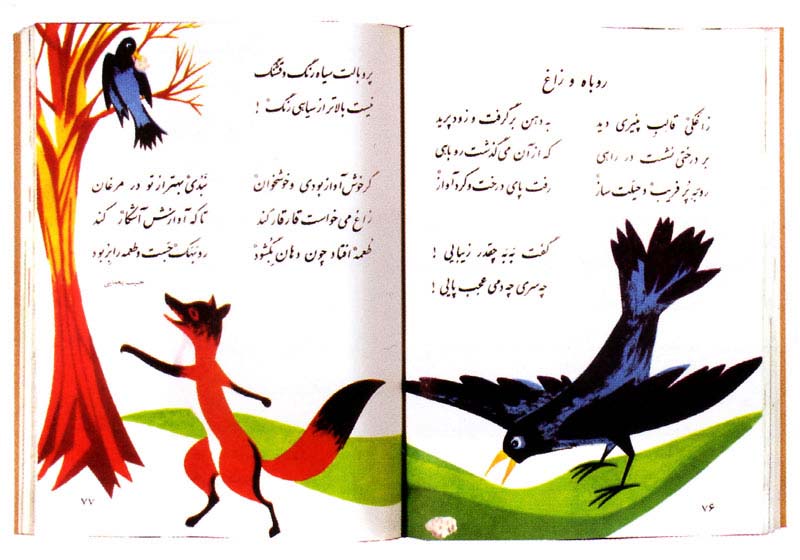 روباه و زاغ
زاغکی قالب پنیری دید به دهن برگرفت و زود پرید
بر درختی نشست در راهی که از آن می‌گذشت روباهی
روبه پُر فریب و حیلت ساز رفت پای درخت و کرد آواز
گفت به‌به چقدر زیبایی !
چه سری چه دمی عجب پایی !
۷۶
پر و بالت سیاه رنگ و قشنگ
نیست بالاتر از سیاهی رنگ !
گر خوش آواز بودی و خوشخوان نَبُدی بهتر از تو در مرغان
زاغ می‌خواست قار قار کند تا که آوازش آشکار کند
طعمه افتاد چون دهان بگشود روبهک جست و طعمه را بربود
حبیب یغمایی
۷۷